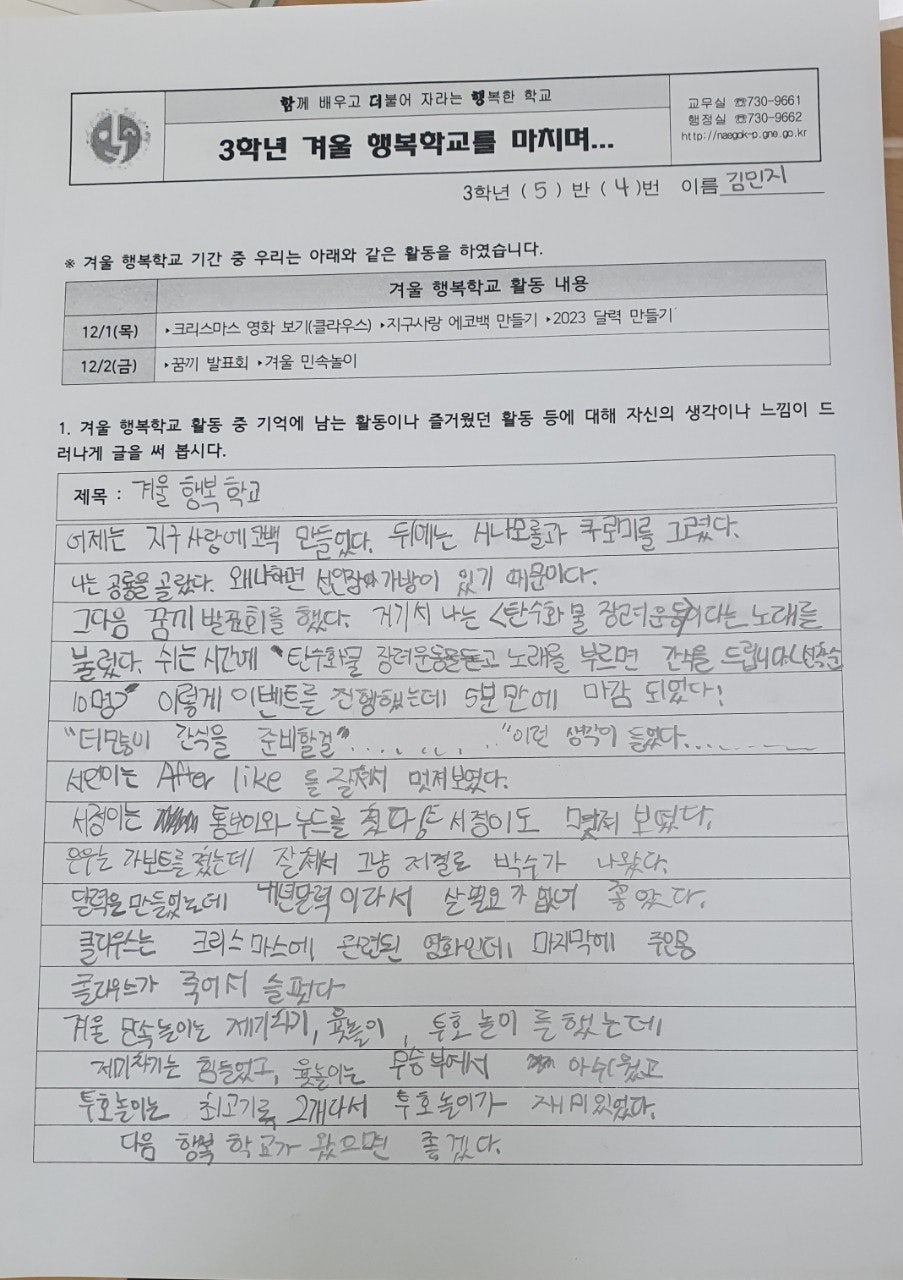 함께 배우고 더불어 자라는 행복한 학교
3학년 겨울 행복학교를 마치며...
교무실 ☎730-9661
행정실 ☎730-9662
http://naegok-p.gne.go.kr
3학년 ( 5 ) 반 ( 4 )번 이름 김민지
※ 겨울 행복학교 기간 중 우리는 아래와 같은 활동을 하였습니다.
겨울 행복학교 활동 내용
12/1(목) ‣크리스마스 영화 보기(클라우스) ‣지구사랑 에코백 만들기 ‣2023 달력 만들기
12/2(금) ‣꿈끼 발표회 ‣겨울 민속놀이
1. 겨울 행복학교 활동 중 기억에 남는 활동이나 즐거웠던 활동 등에 대해 자신의 생각이나 느낌이 드
러나게 글을 써 봅시다.
제목 : 겨울 행복 학교
어제는 지구사랑에코백 만들었다. 뒤에는 시나모롤과 쿠로미를 그렸다.
나는 공룡을 골랐다. 왜냐하면 선인장 가방이 있기 때문이다.
그다음 꿈끼 발표회를 했다. 거기서 나는 <탄수화물 장려운동>이다는 노래를
불렀다. 쉬는시간에 "탄수화물 장려운동을듣고 노래를 부르면 간식을 드립니다<선착순
10명>" 이렇게 이벤트를 진행했는데 5분만에 마감 되었다!
간식을 준비할걸"......... "이런 생각이 들었다..........
서연이는 After like 를 잘춰서 멋져보였다.
서정이는 통보이와 누드를 췄다 서정이도 멋져 보였다.
은우는 가보트를 췄는데 잘쳐서 그냥 저절로 박수가 나왔다.
달력을만들었는데 내년달력이라서 살필요가 없어 좋았다.
클라우스는 크리스마스에 관련된 영화인데 마지막에 주인공
클라우스가 죽어서 슬펐다
겨울 민속놀이는 제기차기, 윷놀이, 투호 놀이 를 했는데
제기차기는 힘들었고, 윷놀이는 무승부에서 아쉬웠고
투호놀이는 최고기록 2개다서 투호놀이가 재미있었다.
다음 행복 학교가 왔으면 좋겠다.